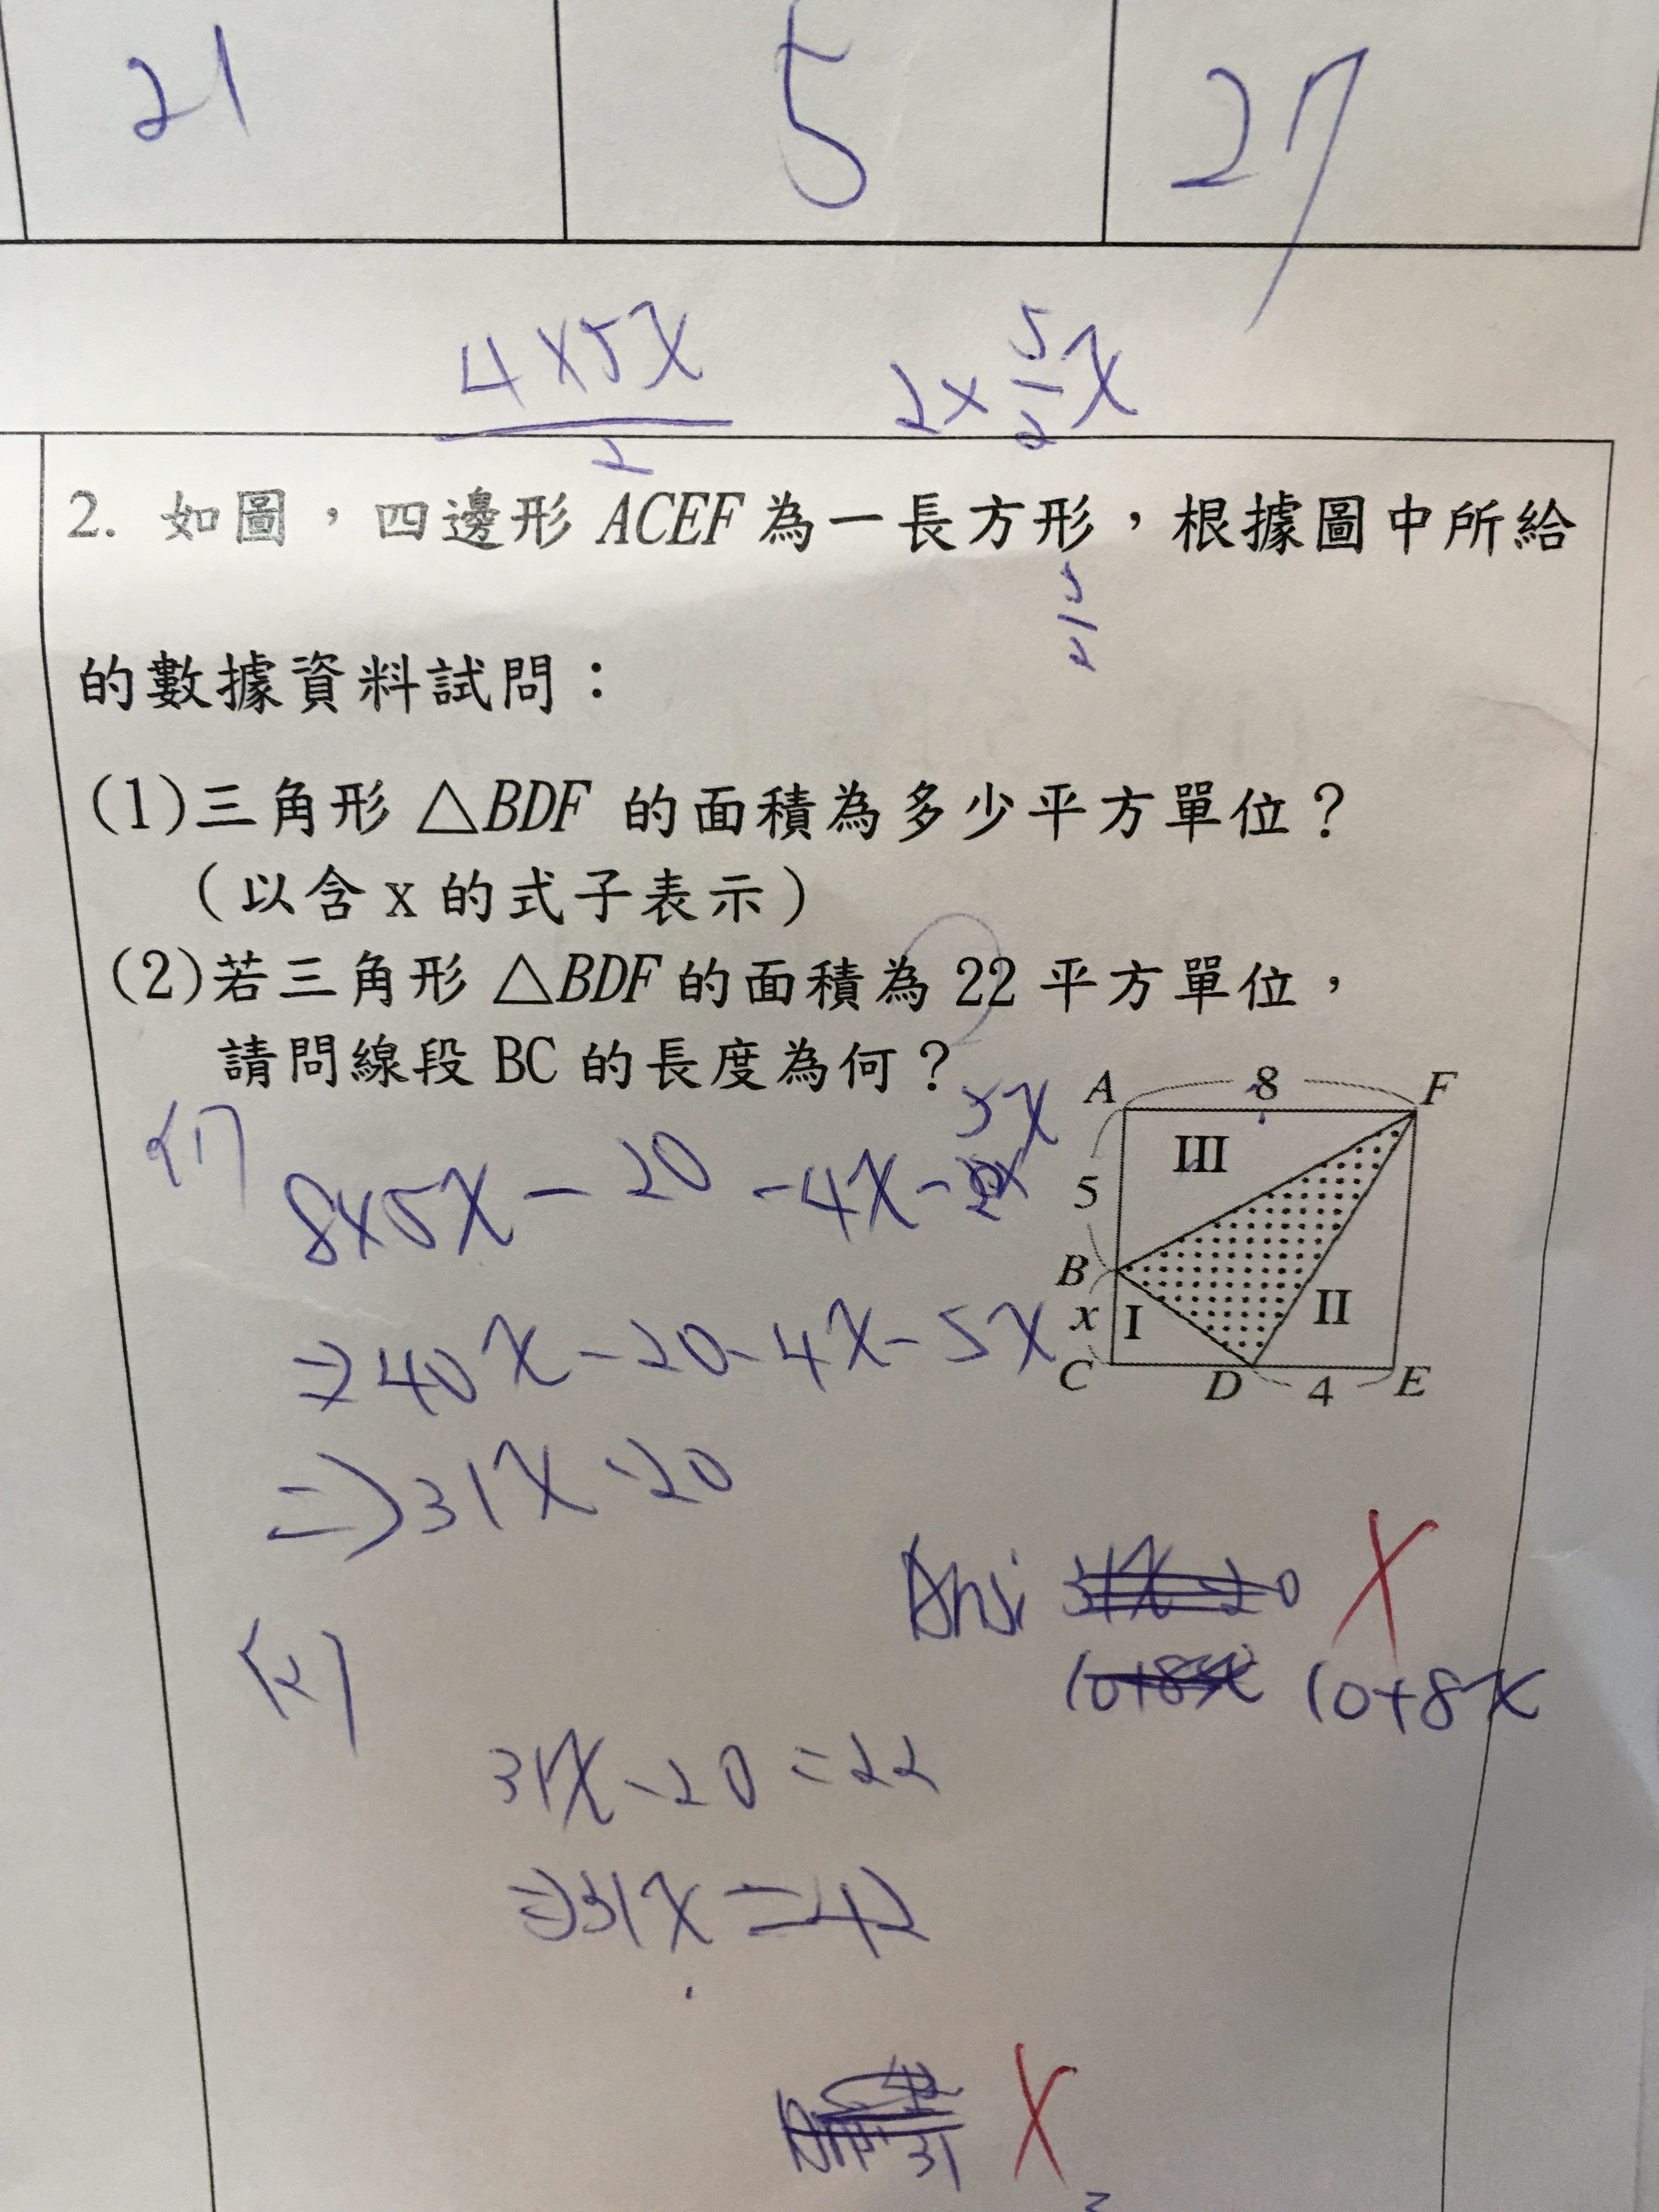 21 5 27
4×5x/2 2×5/2x
2. 如圖，四邊形 ACEF 為一長方形，根據圖中所給
5/2
的數據資料試問：
(1)三角形 △BDF 的面積為多少平方單位？
（以含 x 的式子表示）
(2)若三角形 △BDF 的面積為 22 平方單位，
請問線段 BC 的長度為何？
A 8 F
III
5
B
x I II
C D 4 E
(1)
5x
8×5x-20-4x-
⇒40x-20-4x-5x
⇒31x-20
Ans: 31x-20 X
10+8x 10+8x
(2)
31x-20=22
⇒31x=42
42
31 X